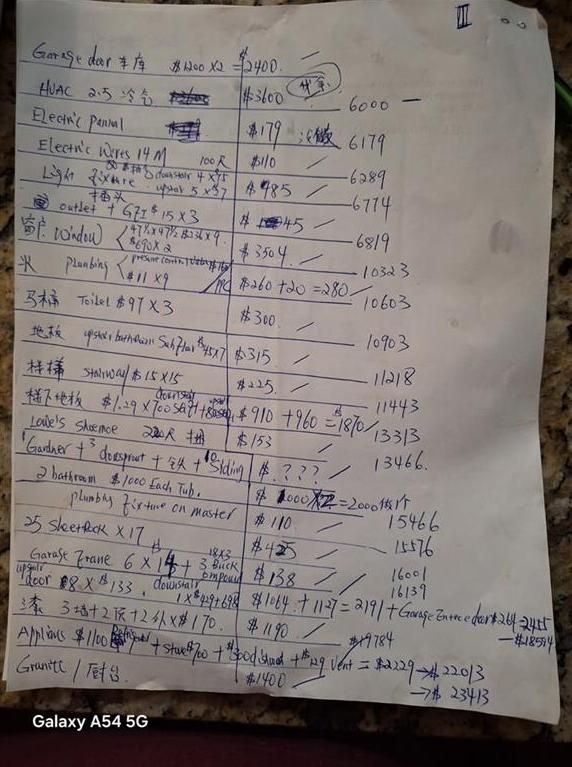 III
Garage door 车库 $1200 X 2 = $2400.
HVAC 2.5 冷气 $3600 6000
Electric pannal $179 没做 6179
Electric Wires 14 M 100尺 $110 6289
Light fixture downstair 4 X 95 upstair 5 X $37 $485 6774
插头 outlet + GFI $15 X 3 $45 6819
窗户 Window 47½ X 47½ $236 X 9 $690 X 2 $3504. 10323
水 plumbing $11 X 9 $260 + 20 = 280 10603
马桶 Toilet $97 X 3 $300. 10903
地板 upstair bathroom Subfloor $45 X 7 $315 11218
楼梯 stairway $15 X 15 $225. 11443
楼下地板 $1.29 X 700 downstair $910 + 960 = $1870 13313
Lowe's shoemoe $153 13466.
Gardner + 3 donsprout + + Siding $ ???
2 bathroom $1000 Each Tub. $1000 = 2000 15466
plumbing fixture on master $110 15576
25 Sheetrock X 17 $425 16001
Garage Frame 6 X + 3 Buck 18X3 compound $138 16139
upstair door 8 X $133. downstair 1 X $429 + 698 $1064 + 1127 = 2191 + Garage Entree door $264 = 2455
$18594
漆 3 墙 + 2 顶 + 2 外 X $170. $1190 $19784
Applinus $1100 + Stove $700 + + $129 Vent = $2229 → $22013
Granite / 厨台 $1400 → $ 23413
Galaxy A54 5G